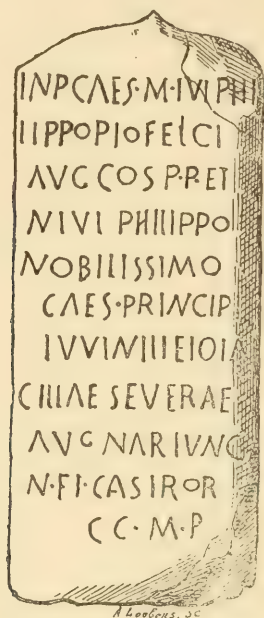 INP CAES·M·IVI PHI
IIPPOPIOFEICI
AVG COS P·P·ET
NIVI PHIIIPPO
NOBIIISSIMO
CAES·PRINCIP
IVVINIIIEIOIA
CIIIAE SEVERAE
AVG NARIVNC
N·FI·CASIROR
CC·M·P
A Loobens. sc